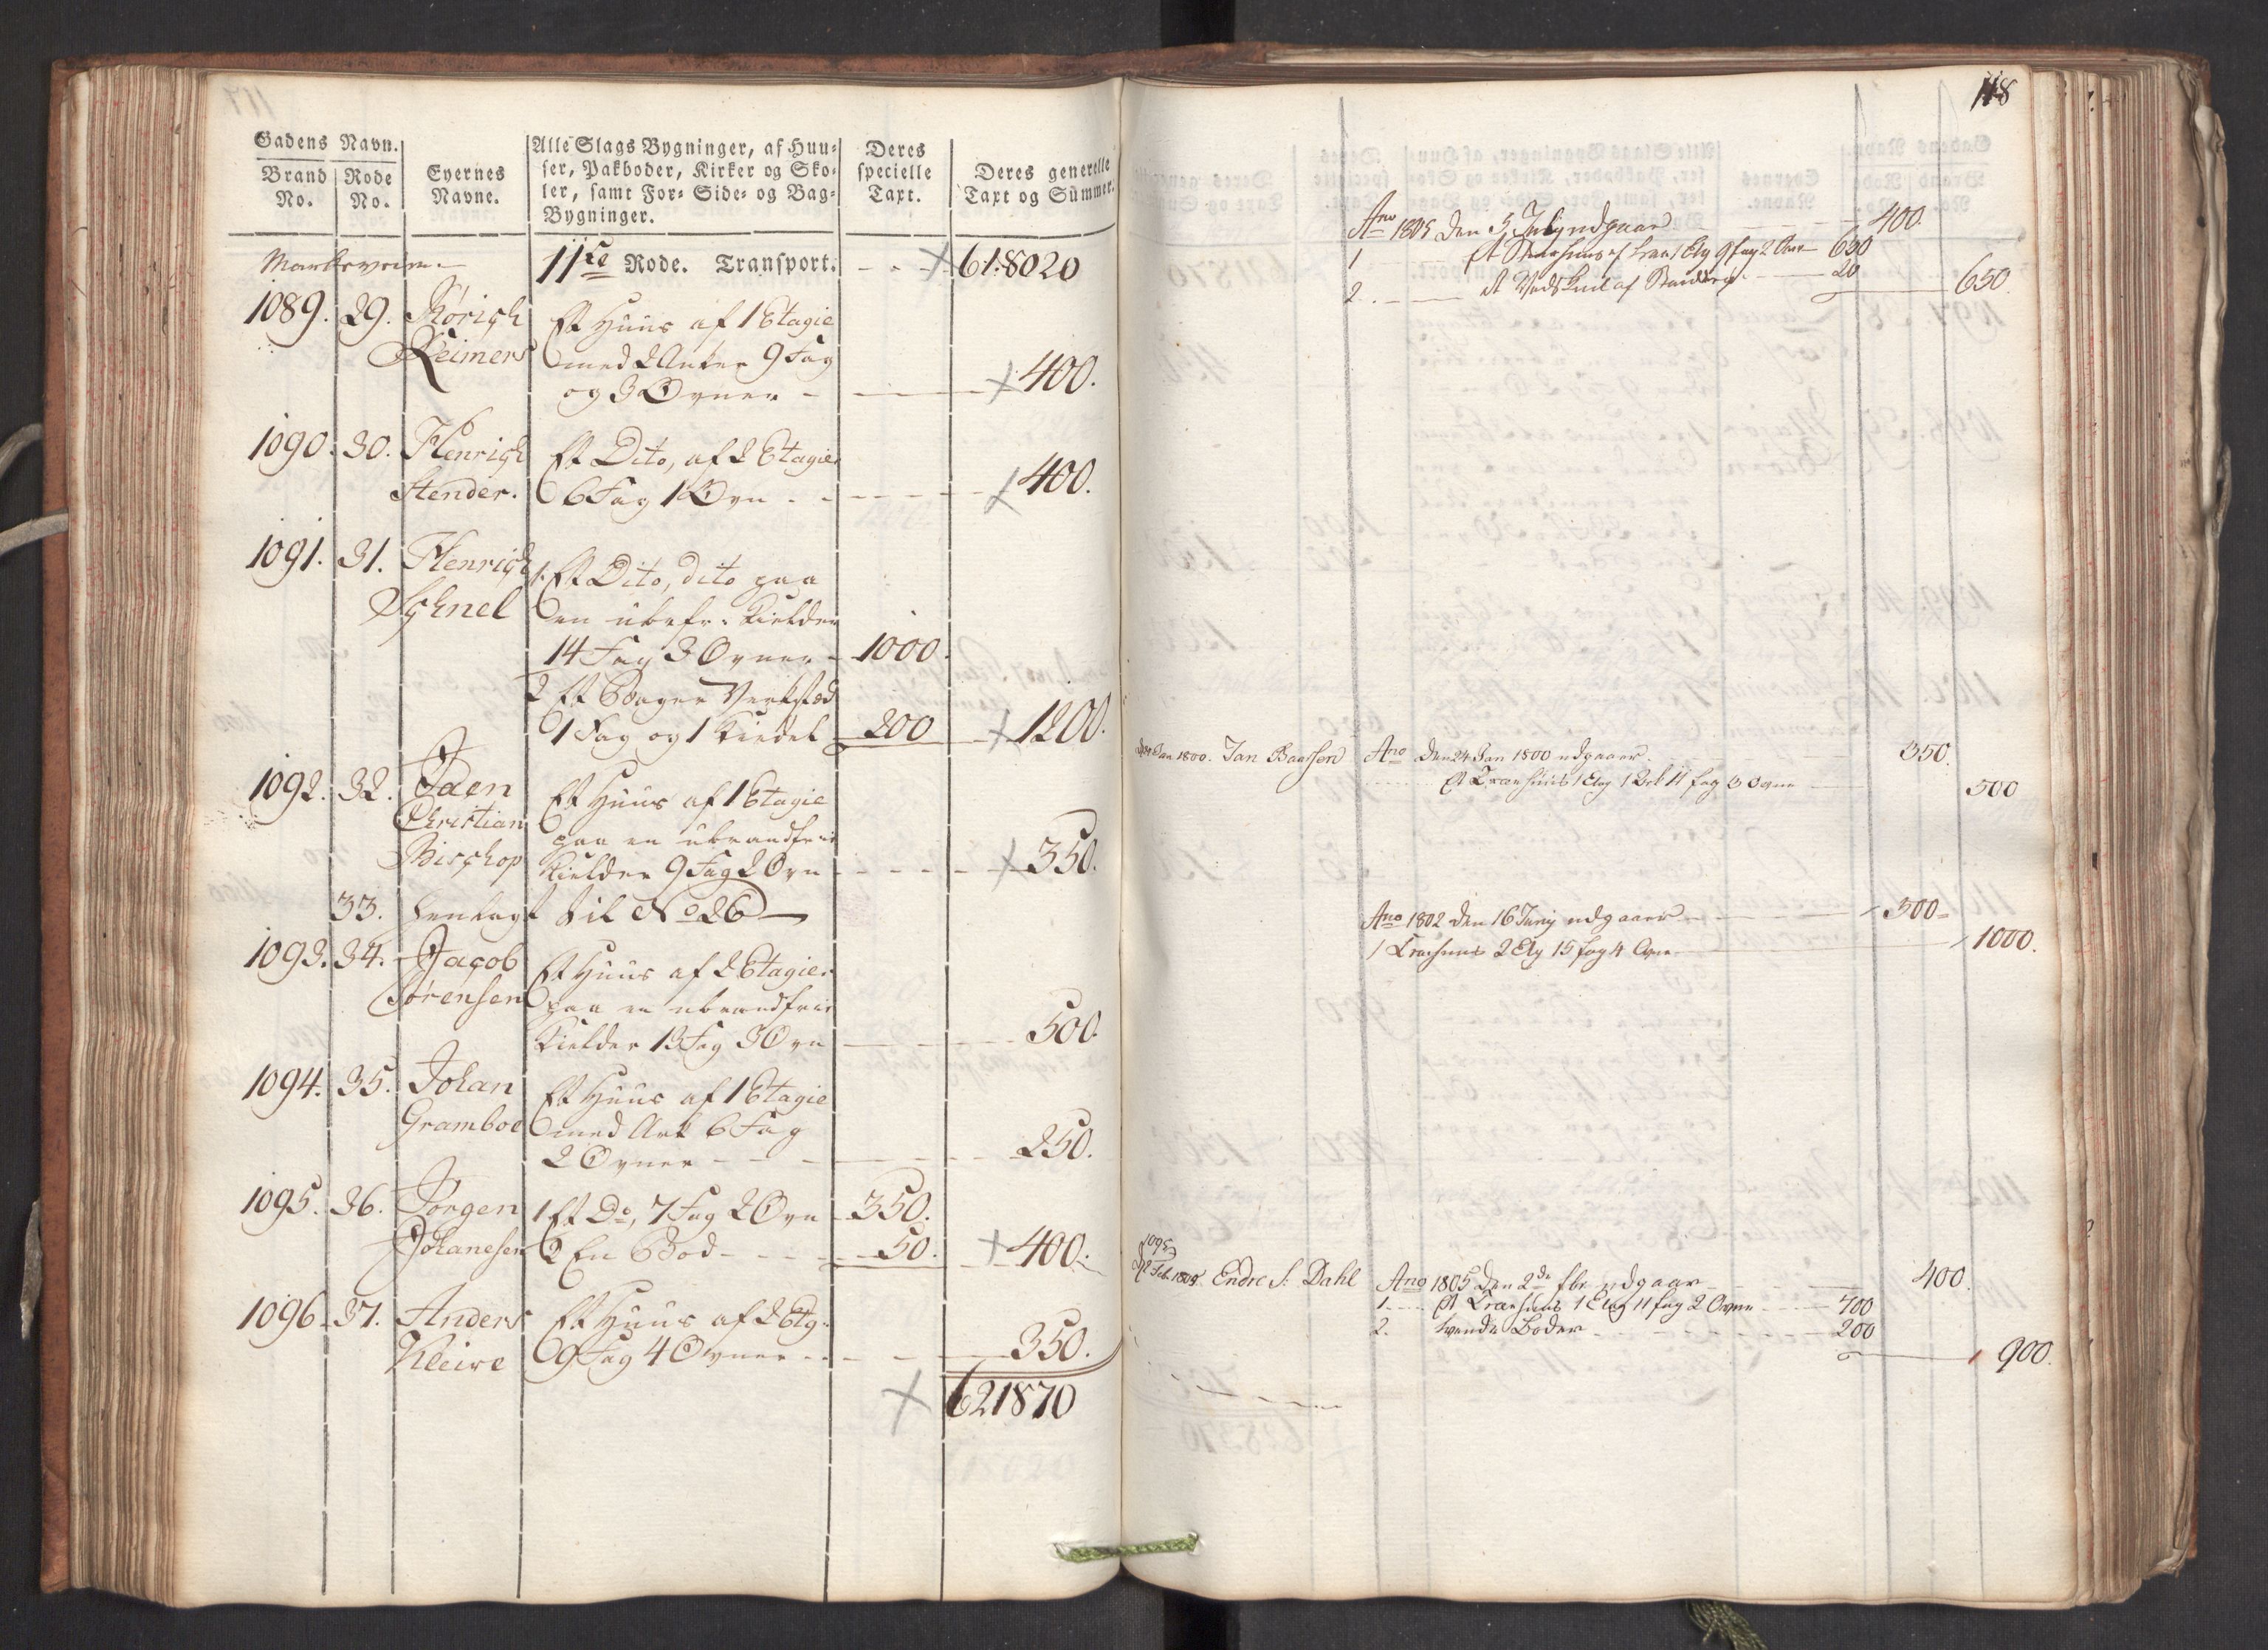 Gadens Navn.
Brand No.
Rode No.
Eyernes Navne.
Alle Slags Bygninger, af Huu-
ser, Pakboder, Kirker og Sko-
ler, samt For- Side- og Bag-
Bygninger.
Deres specielle Taxt.
Deres generelle Taxt og Summer.
11te Rode. Transport. 618020
1089. 29. Et Huus af 1 Etagie
Reimers med 2 Arker 9 Fag
og 3 Ovner 400.
1090. 30. Henrich Et Dito, af 2 Etagier
Stender. 6 Fag 1 Ovn 400.
1091. 31. Henrich 1. Et Dito, dito paa
Schnel en ubrfr: Kielder
14 Fag 3 Ovner 1000.
2 Et Bager Verksted
1 Fag og 1 Kiedel 200 1200.
1092. 32. Et Huus af 1 Etagie
Christian paa en ubrandfrie
Bischop Kielder 9 Fag 2 Ovn 350.
33. henlagt til No 26
1093. 34. Jacob Et Huus af 2 Etagier
Sørensen paa en ubrandfrie
Kielder 13 Fag 3 Ovn 500.
1094. 35. Johan Et Huus af 1 Etagie
Gramboe med Ark 6 Fag
2 Ovner 250.
1095. 36. Jørgen 1 Et Do, 7 Fag 2 Ovn 350.
Johanesen 2 En Bod 50. 400.
1096. 37. Anders Et Huus af 2 Etg.
Kleive 9 Fag 4 Ovner 350.
621870
118
Ano 1805 den 3 July udgaar 400.
1 Et 1 Etg 9 fag 2 Ovne 630
2. et Vedskuul af 20 650.
Jan 1800. Jan Baarsen Ano den 24 Jan 1800 udgaaer 350.
Et Træehuus 1 Etg 11 fag 3 Ovne 500
Ano 1802 den 16 Juny udgaaer 500
1 Træhuus 2 Etg 15 fag 4 Ovne 1000.
1095
Feb. 1805. Endre S. Dahl Ano 1805 den 2de fbr udgaar 400.
1. Et Træehuus 1 Etg 11 fag 2 Ovne 700
2. tvende Boder 200
900.